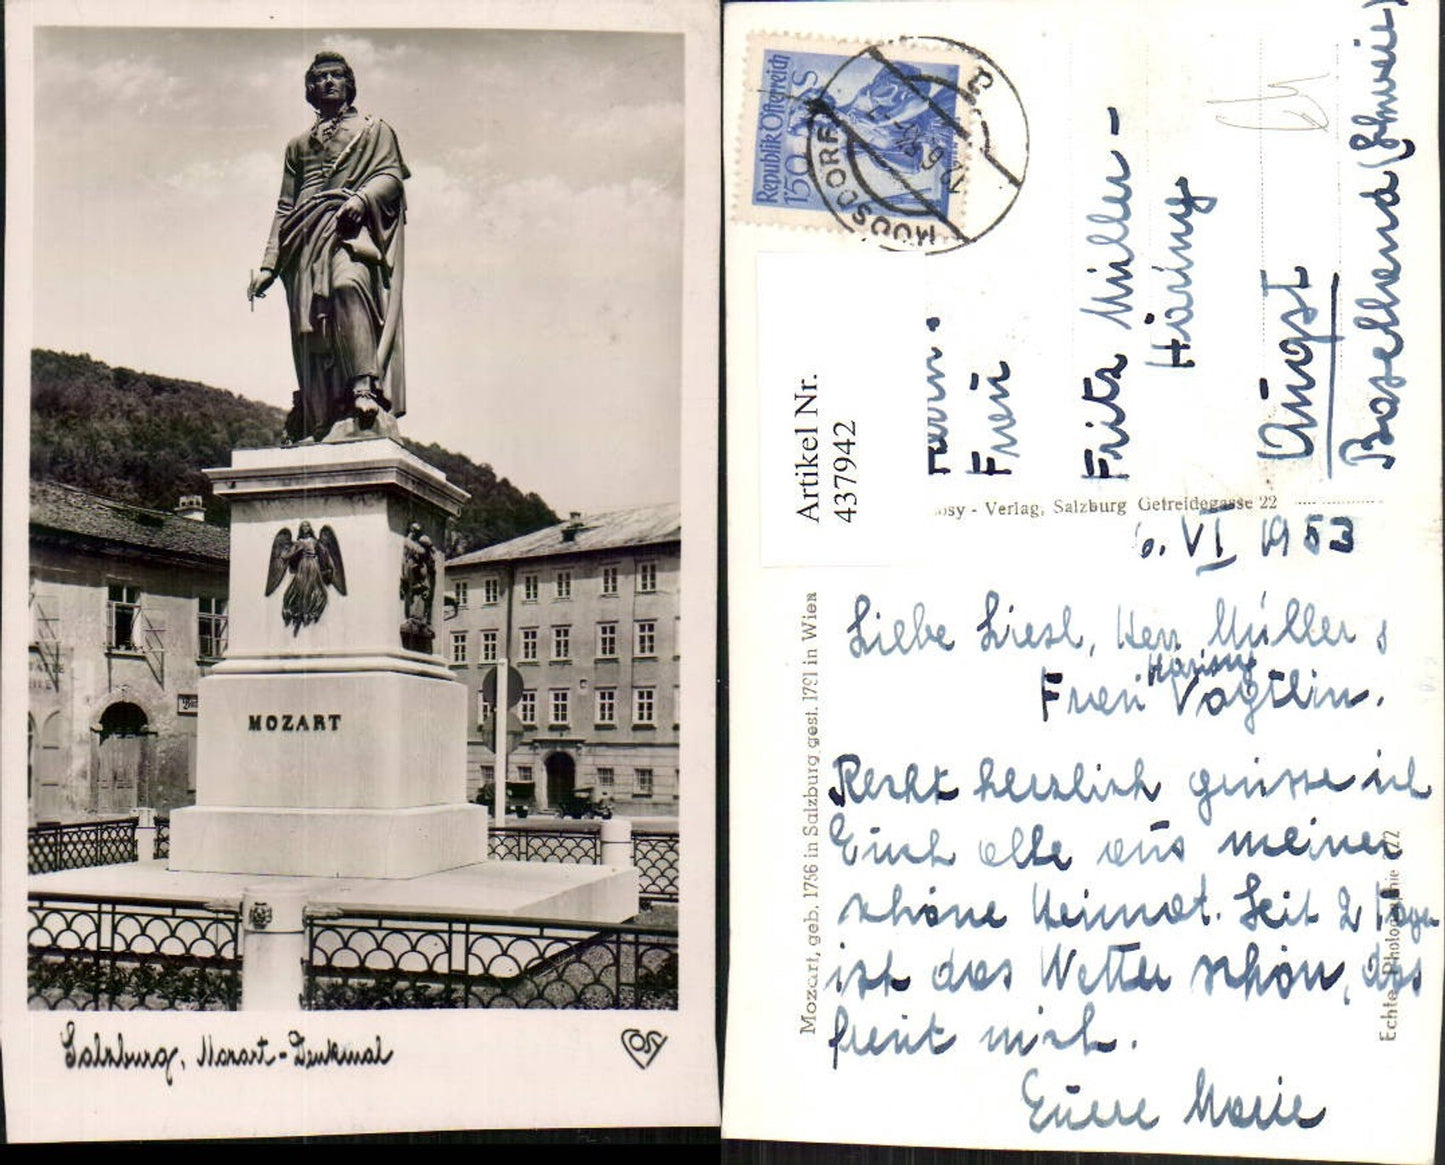 MOZART
Salzburg, Mozart-Denkmal
COSY
Republik Österreich
1'50 S
MOOSDORF
Artikel Nr.
437942
Frau
Frieda Müller-
Häring
Augst
Baselland (Schweiz)
osy - Verlag, Salzburg Getreidegasse 22
Mozart, geb. 1756 in Salzburg gest. 1791 in Wien
Echte Photographie
6. VI 1953
Liebe Liesl, Herr Müller &
Häring
Frau Vögtlin.
Recht herzlich grüsse ich
Euch alle aus meiner
schöne Heimat. Seit 2 Tagen
ist das Wetter schön, das
freut mich.
Euere Marie